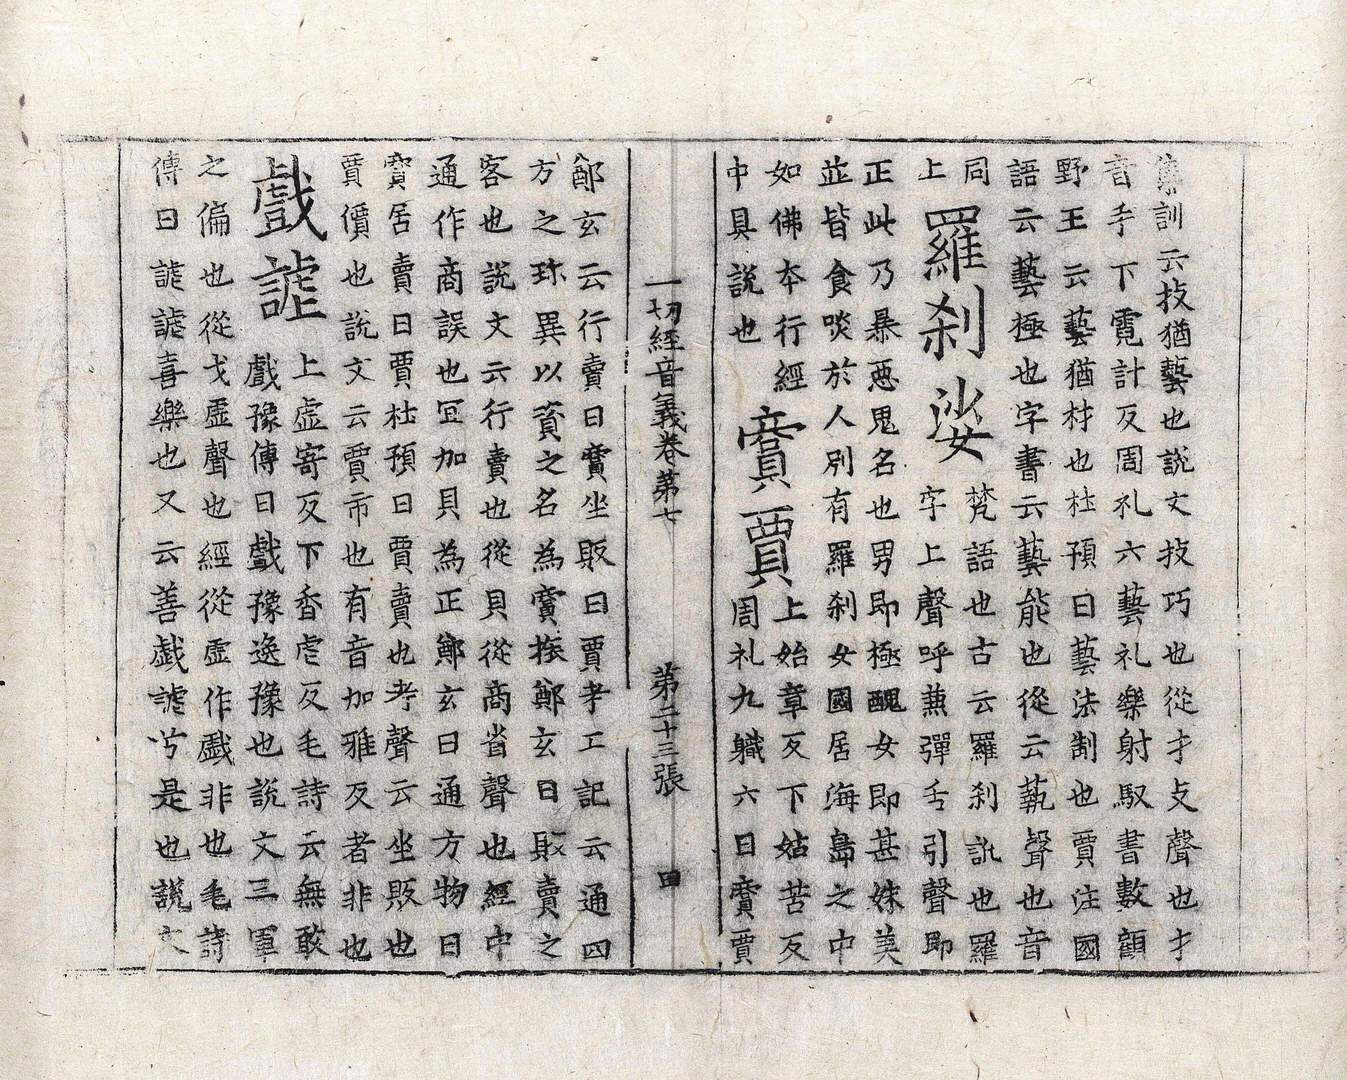 集訓云技猶藝也說文技巧也從才支聲也才
音手下霓計反周礼六藝礼樂射馭書數顧
野王云藝猶材也杜預曰藝法制也賈注國
語云藝極也字書云藝能也從云埶聲也音
同上羅剎娑梵語也古云羅剎訛也羅
字上聲呼兼彈舌引聲即
正此乃暴惡鬼名也男即極醜女即甚姝美
並皆食啖於人別有羅剎女國居海島之中
如佛本行經
中具說也賷賈上始章反下姑苦反
周礼九職六曰賷賈
一切經音義卷第七　第二十三張　田
鄭玄云行賣曰賷坐販曰賈考工記云通四
方之珎異以資之名為賷旅鄭玄曰販賣之
客也說文云行賣也從貝從商省聲也經中
通作商誤也冝加貝為正鄭玄曰通方物曰
賷居賣曰賈杜預曰賈賣也考聲云坐販也
賈價也說文云賈市也有音加雅反者非也
戲謔上虛寄反下香虐反毛詩云無敢
戲豫傳曰戲豫逸豫也說文三軍
之偏也從戈䖒聲也經從虛作戱非也毛詩
傳曰謔謔喜樂也又云善戲謔兮是也說文